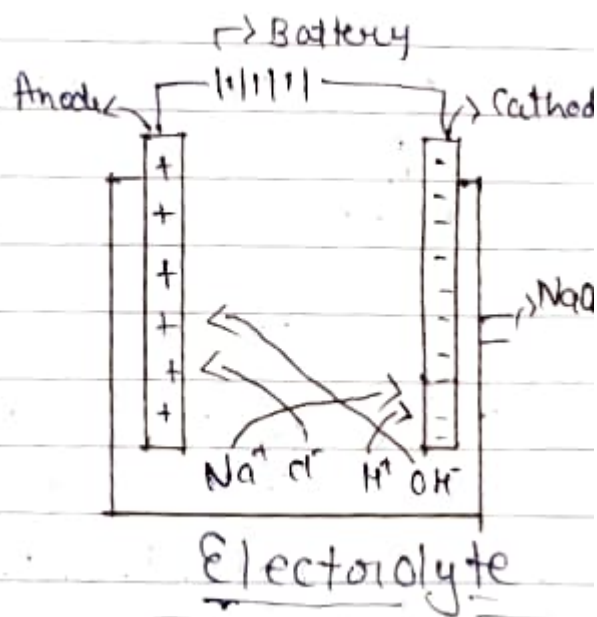 Battery
Anode
Cathod
+ -
+ -
+ -
+ -
+ -
+ -
Na⁺ Cl⁻ H⁺ OH⁻
Electrolyte